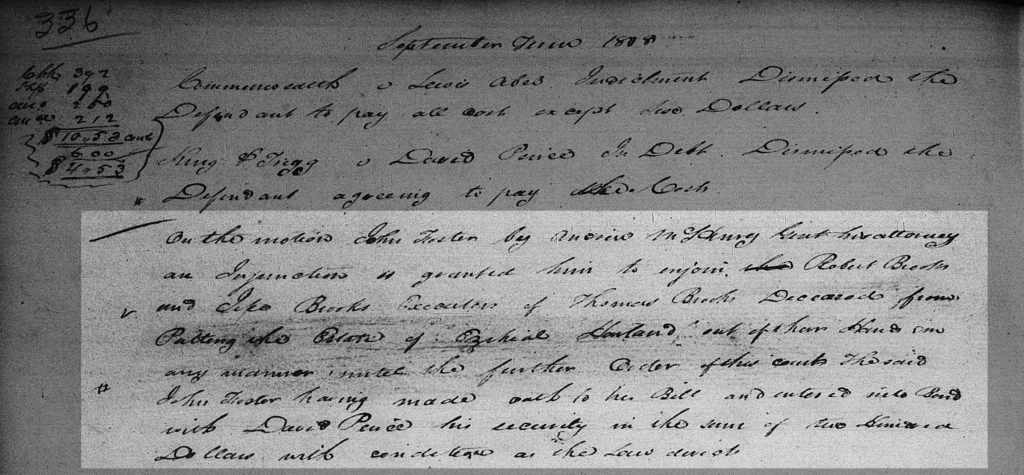 336
September Term 1808
Commonwealth v Lewis Abed Indictment Dismissed the
Defendant to pay all cost except two Dollars.
King & Trigg v David Peirce In Debt. Dismissed the
Defendant agreeing to pay the Costs
392
199
250
212
$10.53
6.00
$4.53
On the motion John Foster by Andrew McHenry Gent his attorney
an Injunction is granted him to enjoin the Robert Brooks
and Brooks Executors of Thomas Brooks Deceased from
Putting the Estate of Ezekial out of their Hands in
any manner until the further Order of this court The said
John Foster having made oath to his Bill and entered into Bond
with David Peirce his security in the sum of two Hundred
Dollars with condition as the Law directs